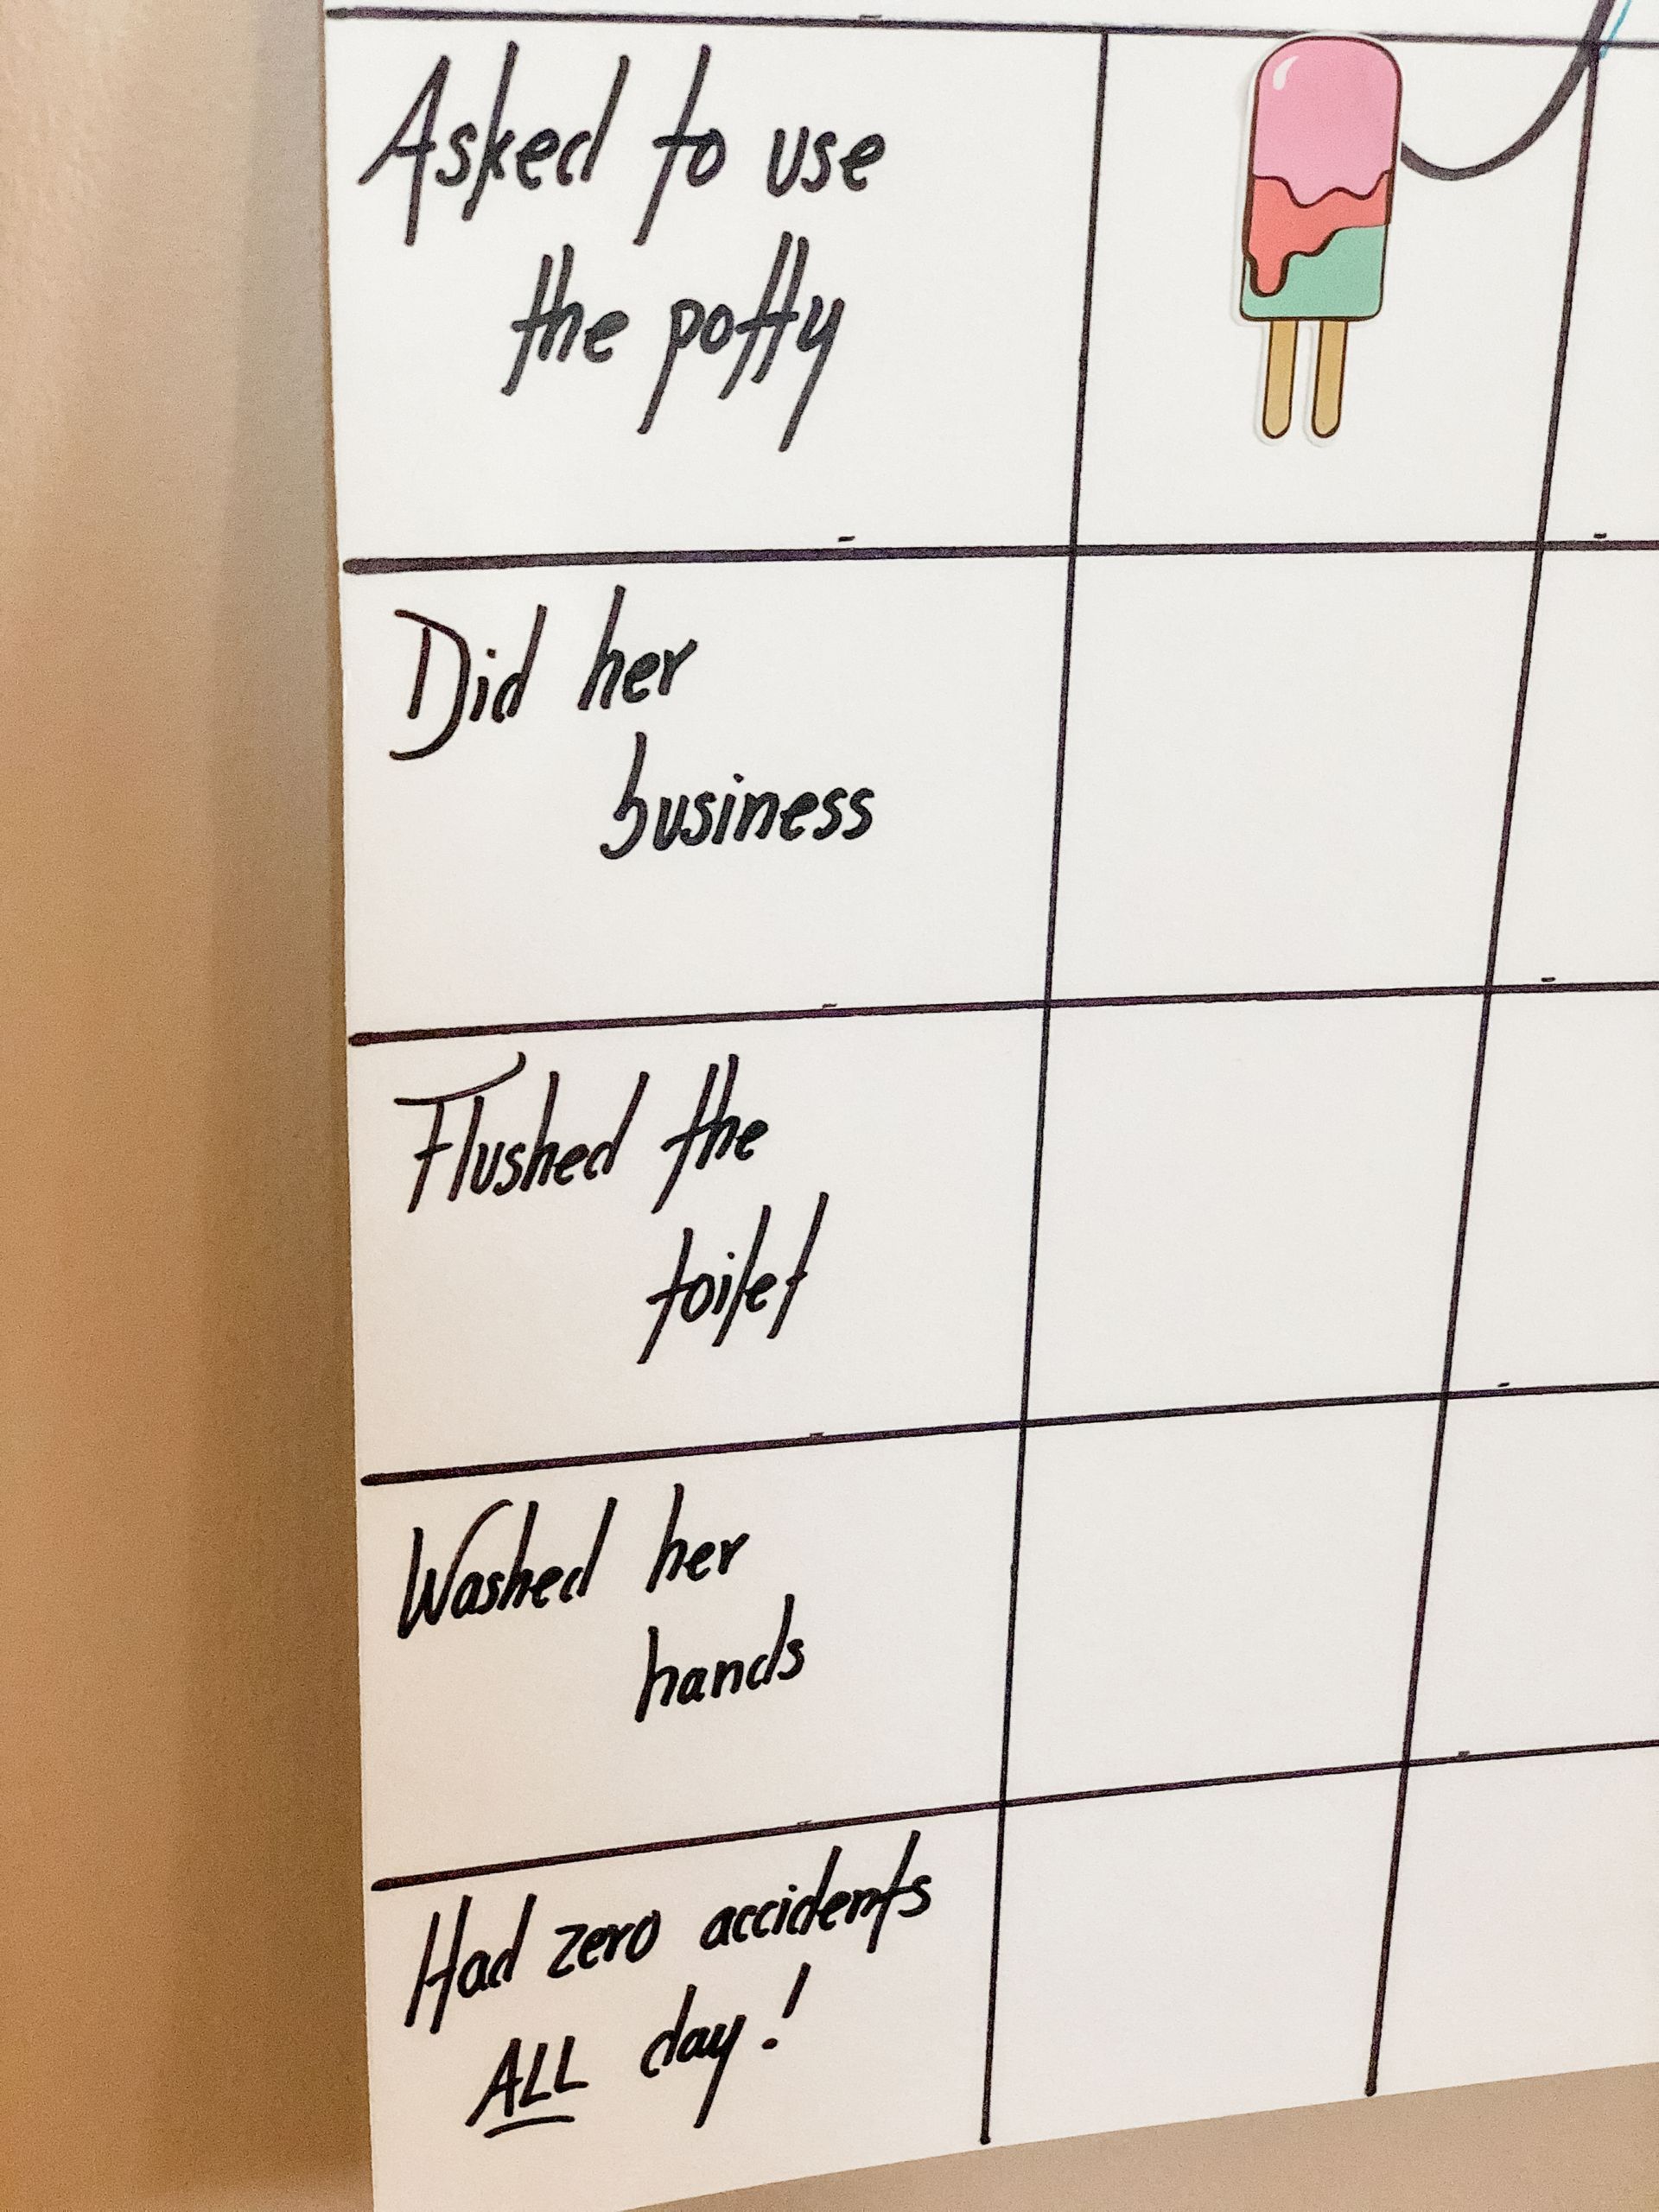 Asked to use
the potty
Did her
business
Flushed the
toilet
Washed her
hands
Had zero accidents
ALL day!